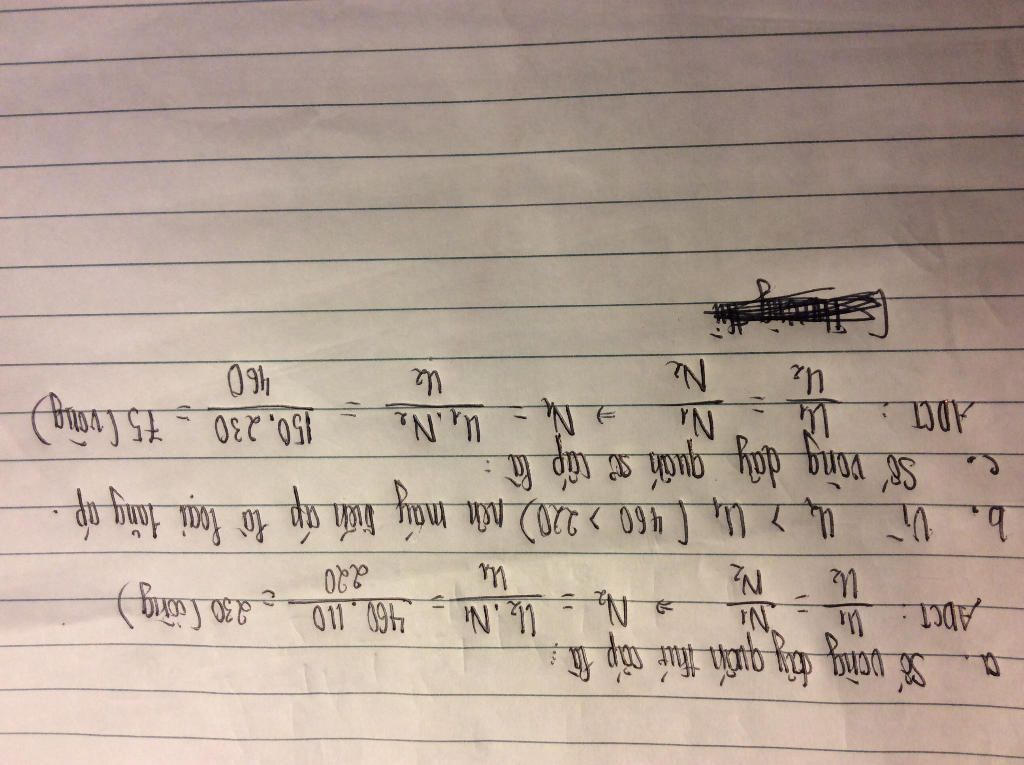 a. Số vòng dây quấn thứ cấp là :
ADCT : U₁/U₂ = N₁/N₂ ⇒ N₂ = U₂.N₁/U₁ = 460.110/220 = 230 (vòng)
b. Vì U₂ > U₁ (460 > 220) nên máy biến áp là loại tăng áp.
c. Số vòng dây quấn sơ cấp là :
ADCT : U₁/U₂ = N₁/N₂ ⇒ N₁ = U₁.N₂/U₂ = 150.230/460 = 75 (vòng)